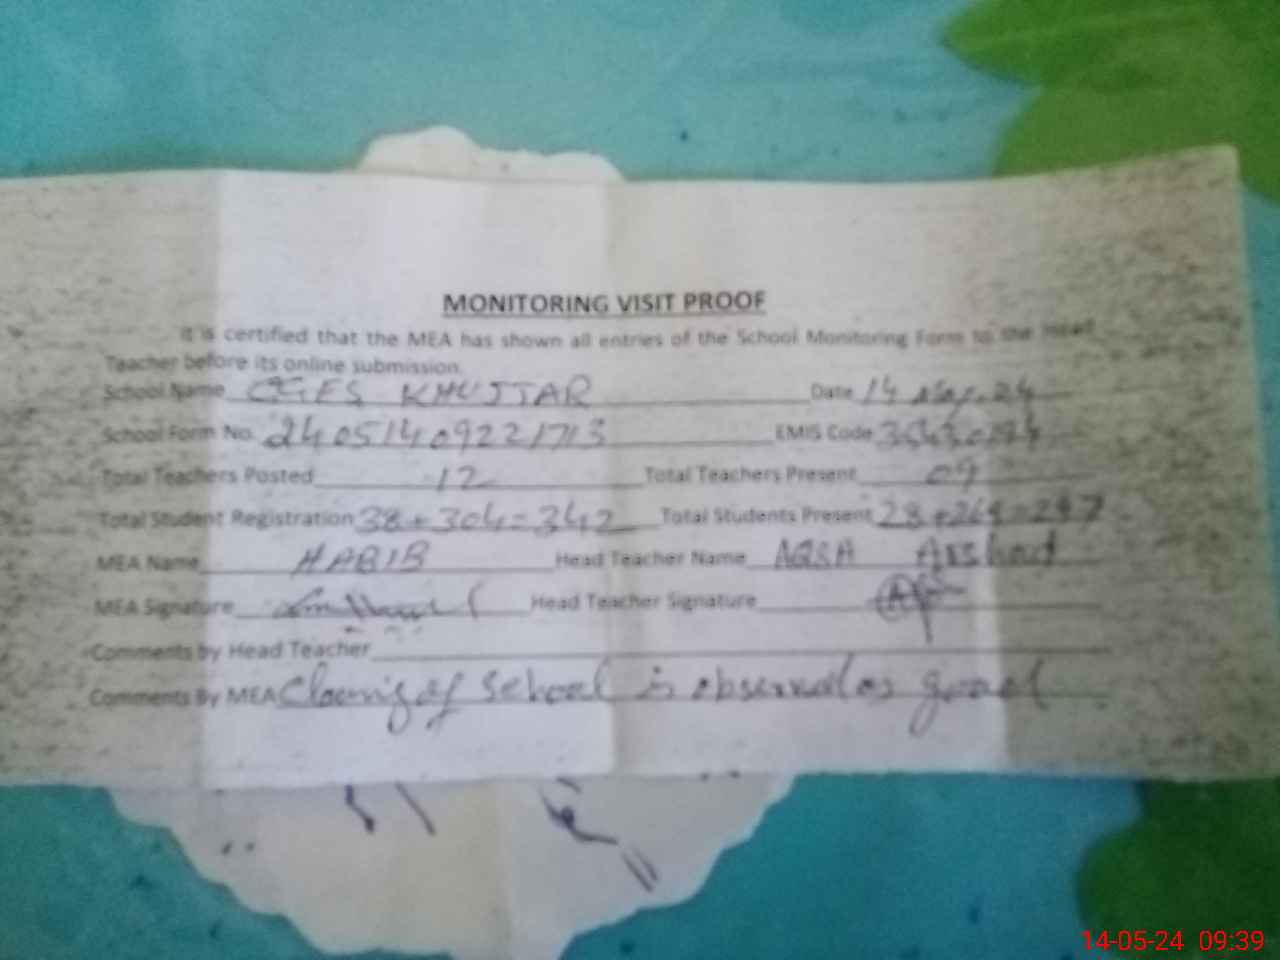 MONITORING VISIT PROOF
It is certified that the MEA has shown all entries of the School Monitoring Form to the Head
Teacher before its online submission.
School Name GGES KHUJJAR Date 14 May. 24
School Form No. 24051409221713 EMIS Code
Total Teachers Posted 12 Total Teachers Present 09
Total Student Registration 38+304=342 Total Students Present 28+269=297
MEA Name HABIB Head Teacher Name AQSA Arshad
MEA Signature Head Teacher Signature
Comments by Head Teacher
Comments By MEA of school is observed as good
14-05-24 09:39